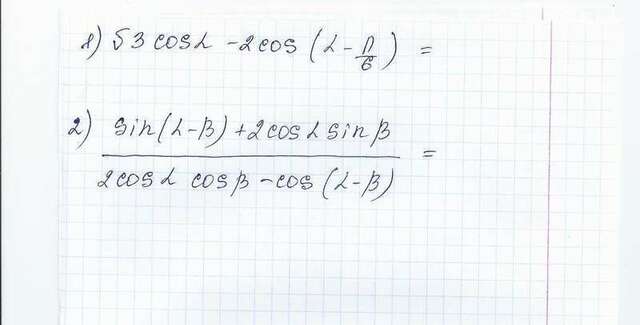 1) √3 cosα - 2cos (α - π/6) =
2) (sin(α-β) + 2cosα sinβ) / (2cosα cosβ - cos(α-β)) =